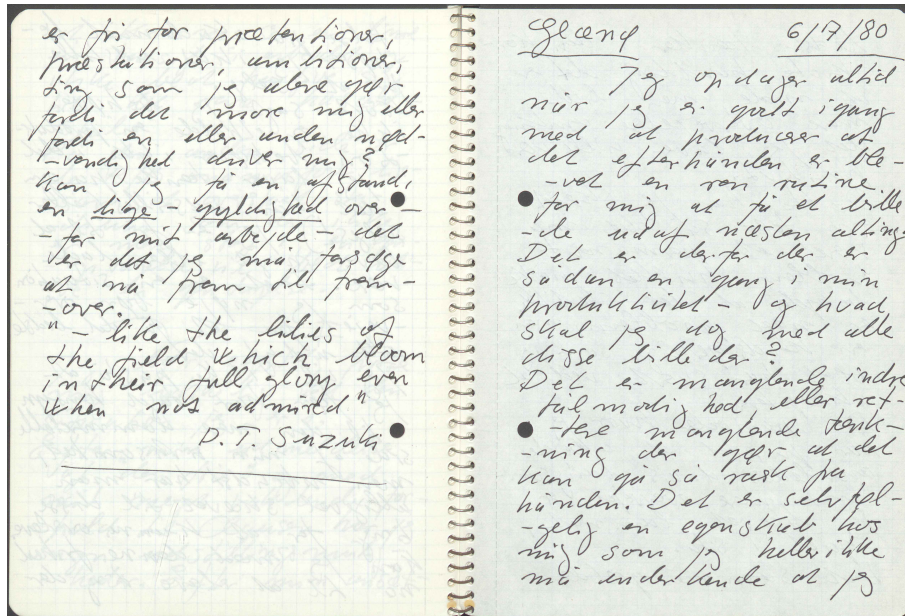 er fri for prætentioner,
præstationer, ambitioner,
ting som jeg alene gør
fordi det more mig eller
fordi en eller anden nød-
-vendighed driver mig?
Kan jeg få en afstand,
en lige-gyldighed over-
-for mit arbejde - det
er det jeg må forsøge
at nå frem til frem-
-over.
"- like the lilies of
the field which bloom
in their full glory even
when not admired"
D. T. Suzuki
Glænø 6/7/80
Jeg opdager altid
når jeg er godt igang
med at producer at
det efterhånden er ble-
-vet en ren rutine
for mig at få et bille
-de ud af næsten alting.
Det er derfor der er
sådan en gang i min
produktivitet - og hvad
skal jeg dog med alle
disse billeder?
Det er manglende indre
tålmodighed eller ret-
-tere manglende tænk-
-ning der gør at det
kan gå så rask fra
hånden. Det er selvføl-
-gelig en egenskab hos
mig som jeg heller ikke
må underkende at jeg